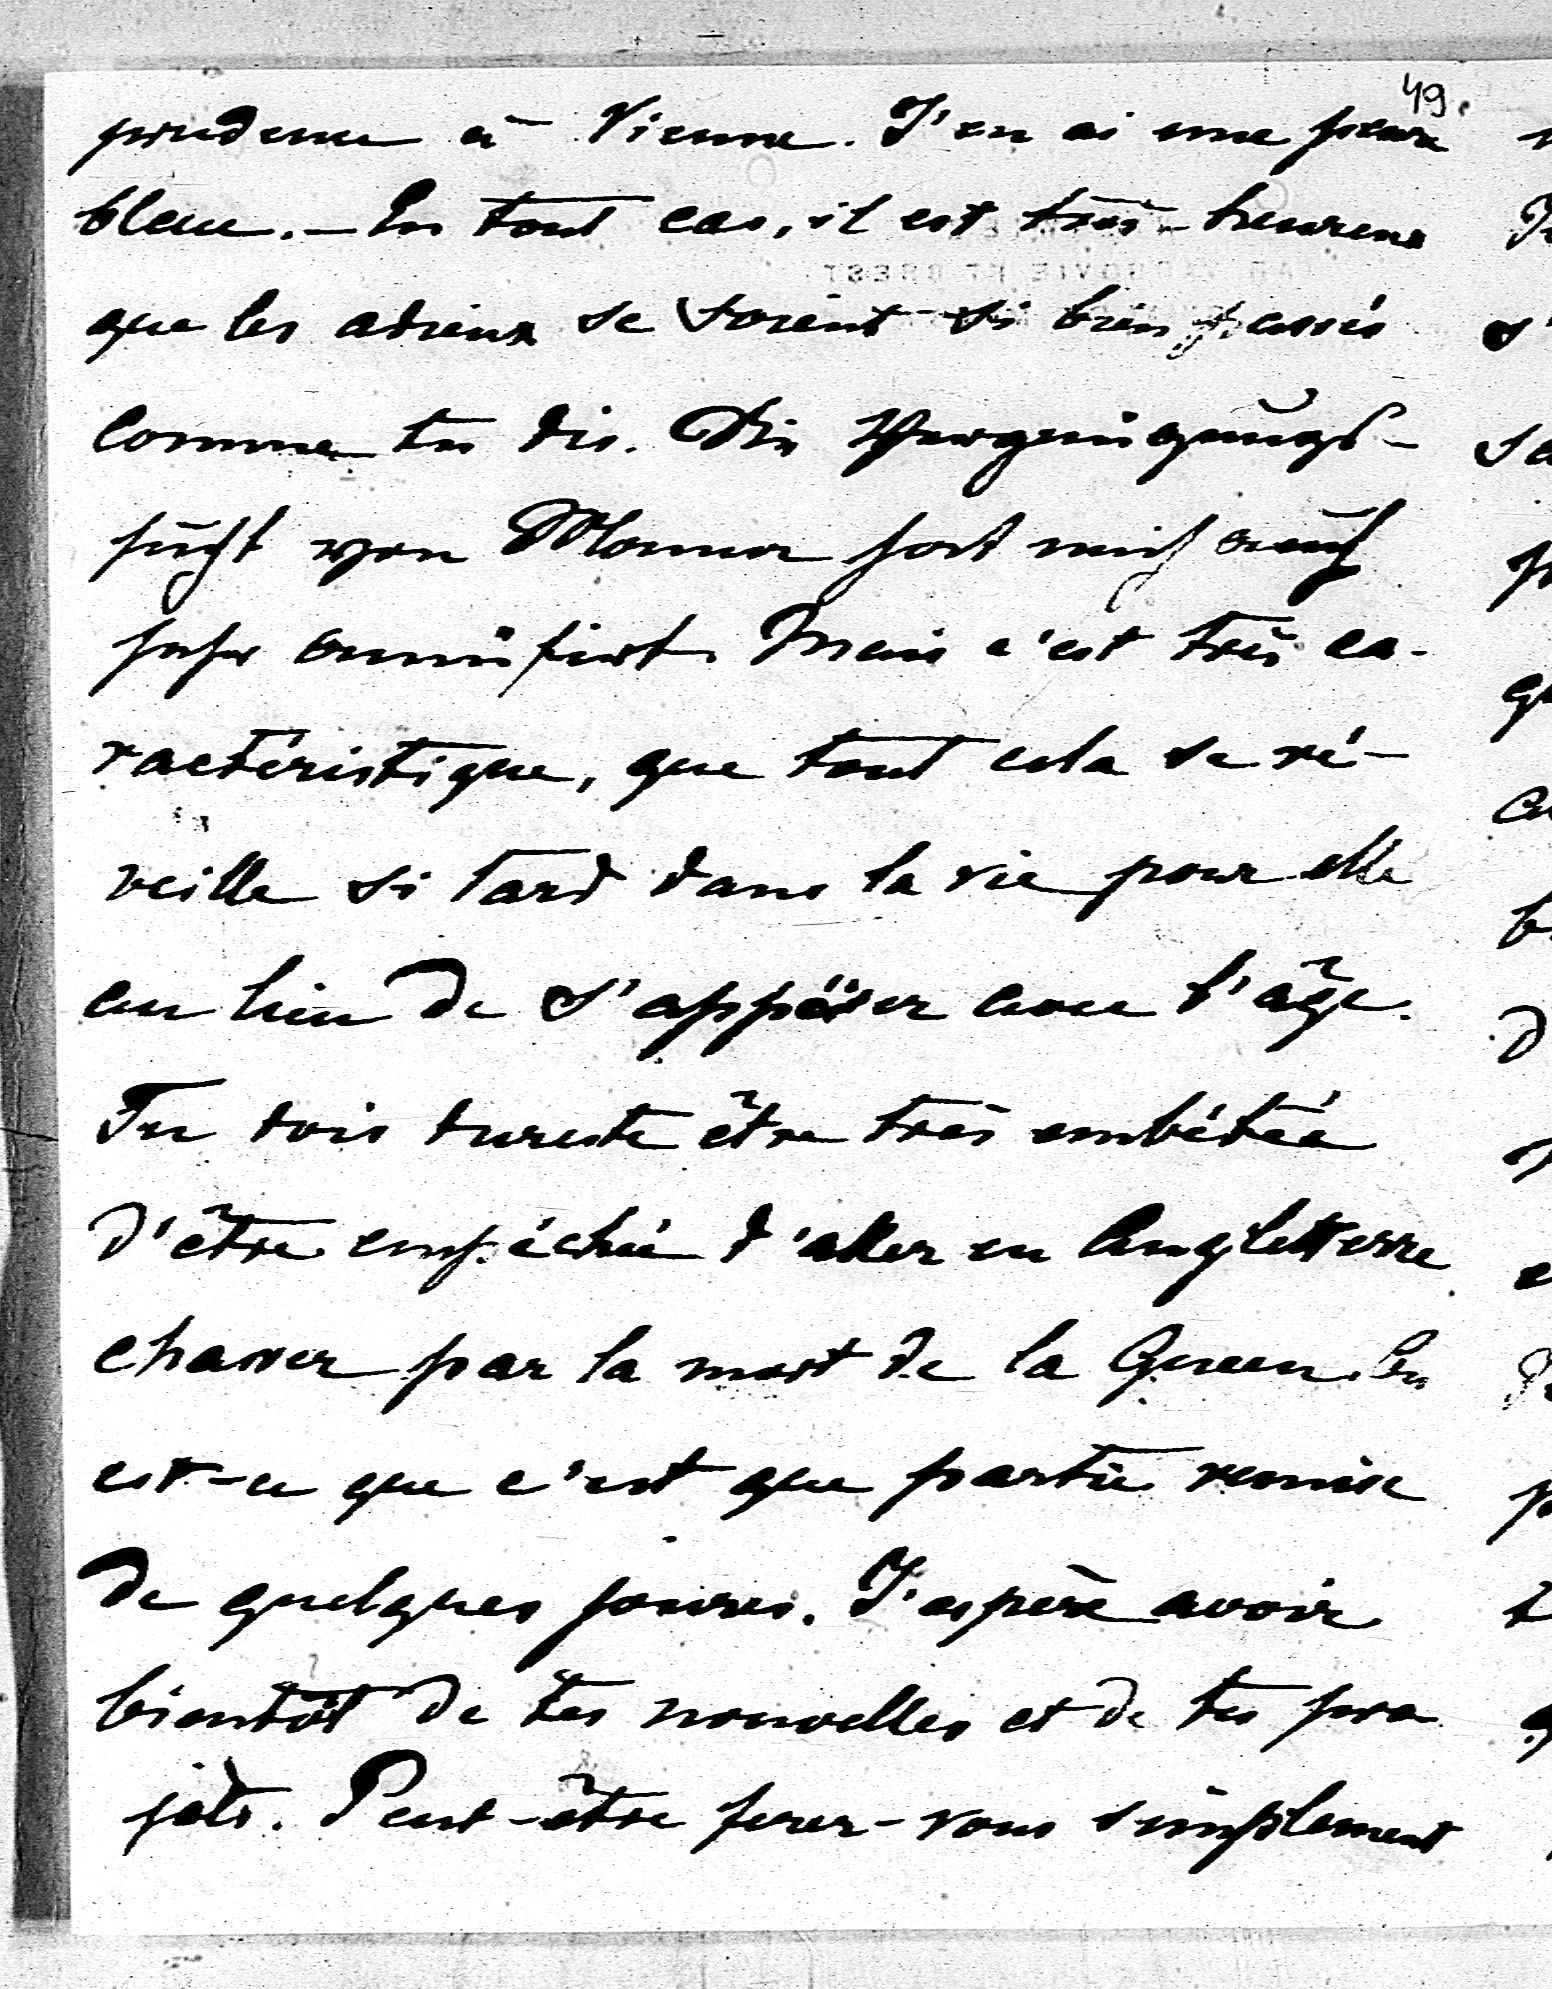 49.
prudence à Vienne. J'en ai une peur
bleue. — En tout cas, il est très-heureux
que les adieux se soient si bien passés
comme tu dis. Die Vergnügungs-
sucht von Mama hat mich auch
sehr amüsirt. Mais c'est très ca-
ractéristique, que tout cela se ré-
veille si tard dans la vie pour elle
au lieu de s'appaiser avec l'âge.
Tu dois du reste être très embêtée
d'être empêchée d'aller en Angletterre
chasser par la mort de la Queen. Ou
est-ce que c'est que partie remise
de quelques jours. J'espère avoir
bientôt de tes nouvelles et de tes pro
jèts. Peut-être ferez-vous simplement